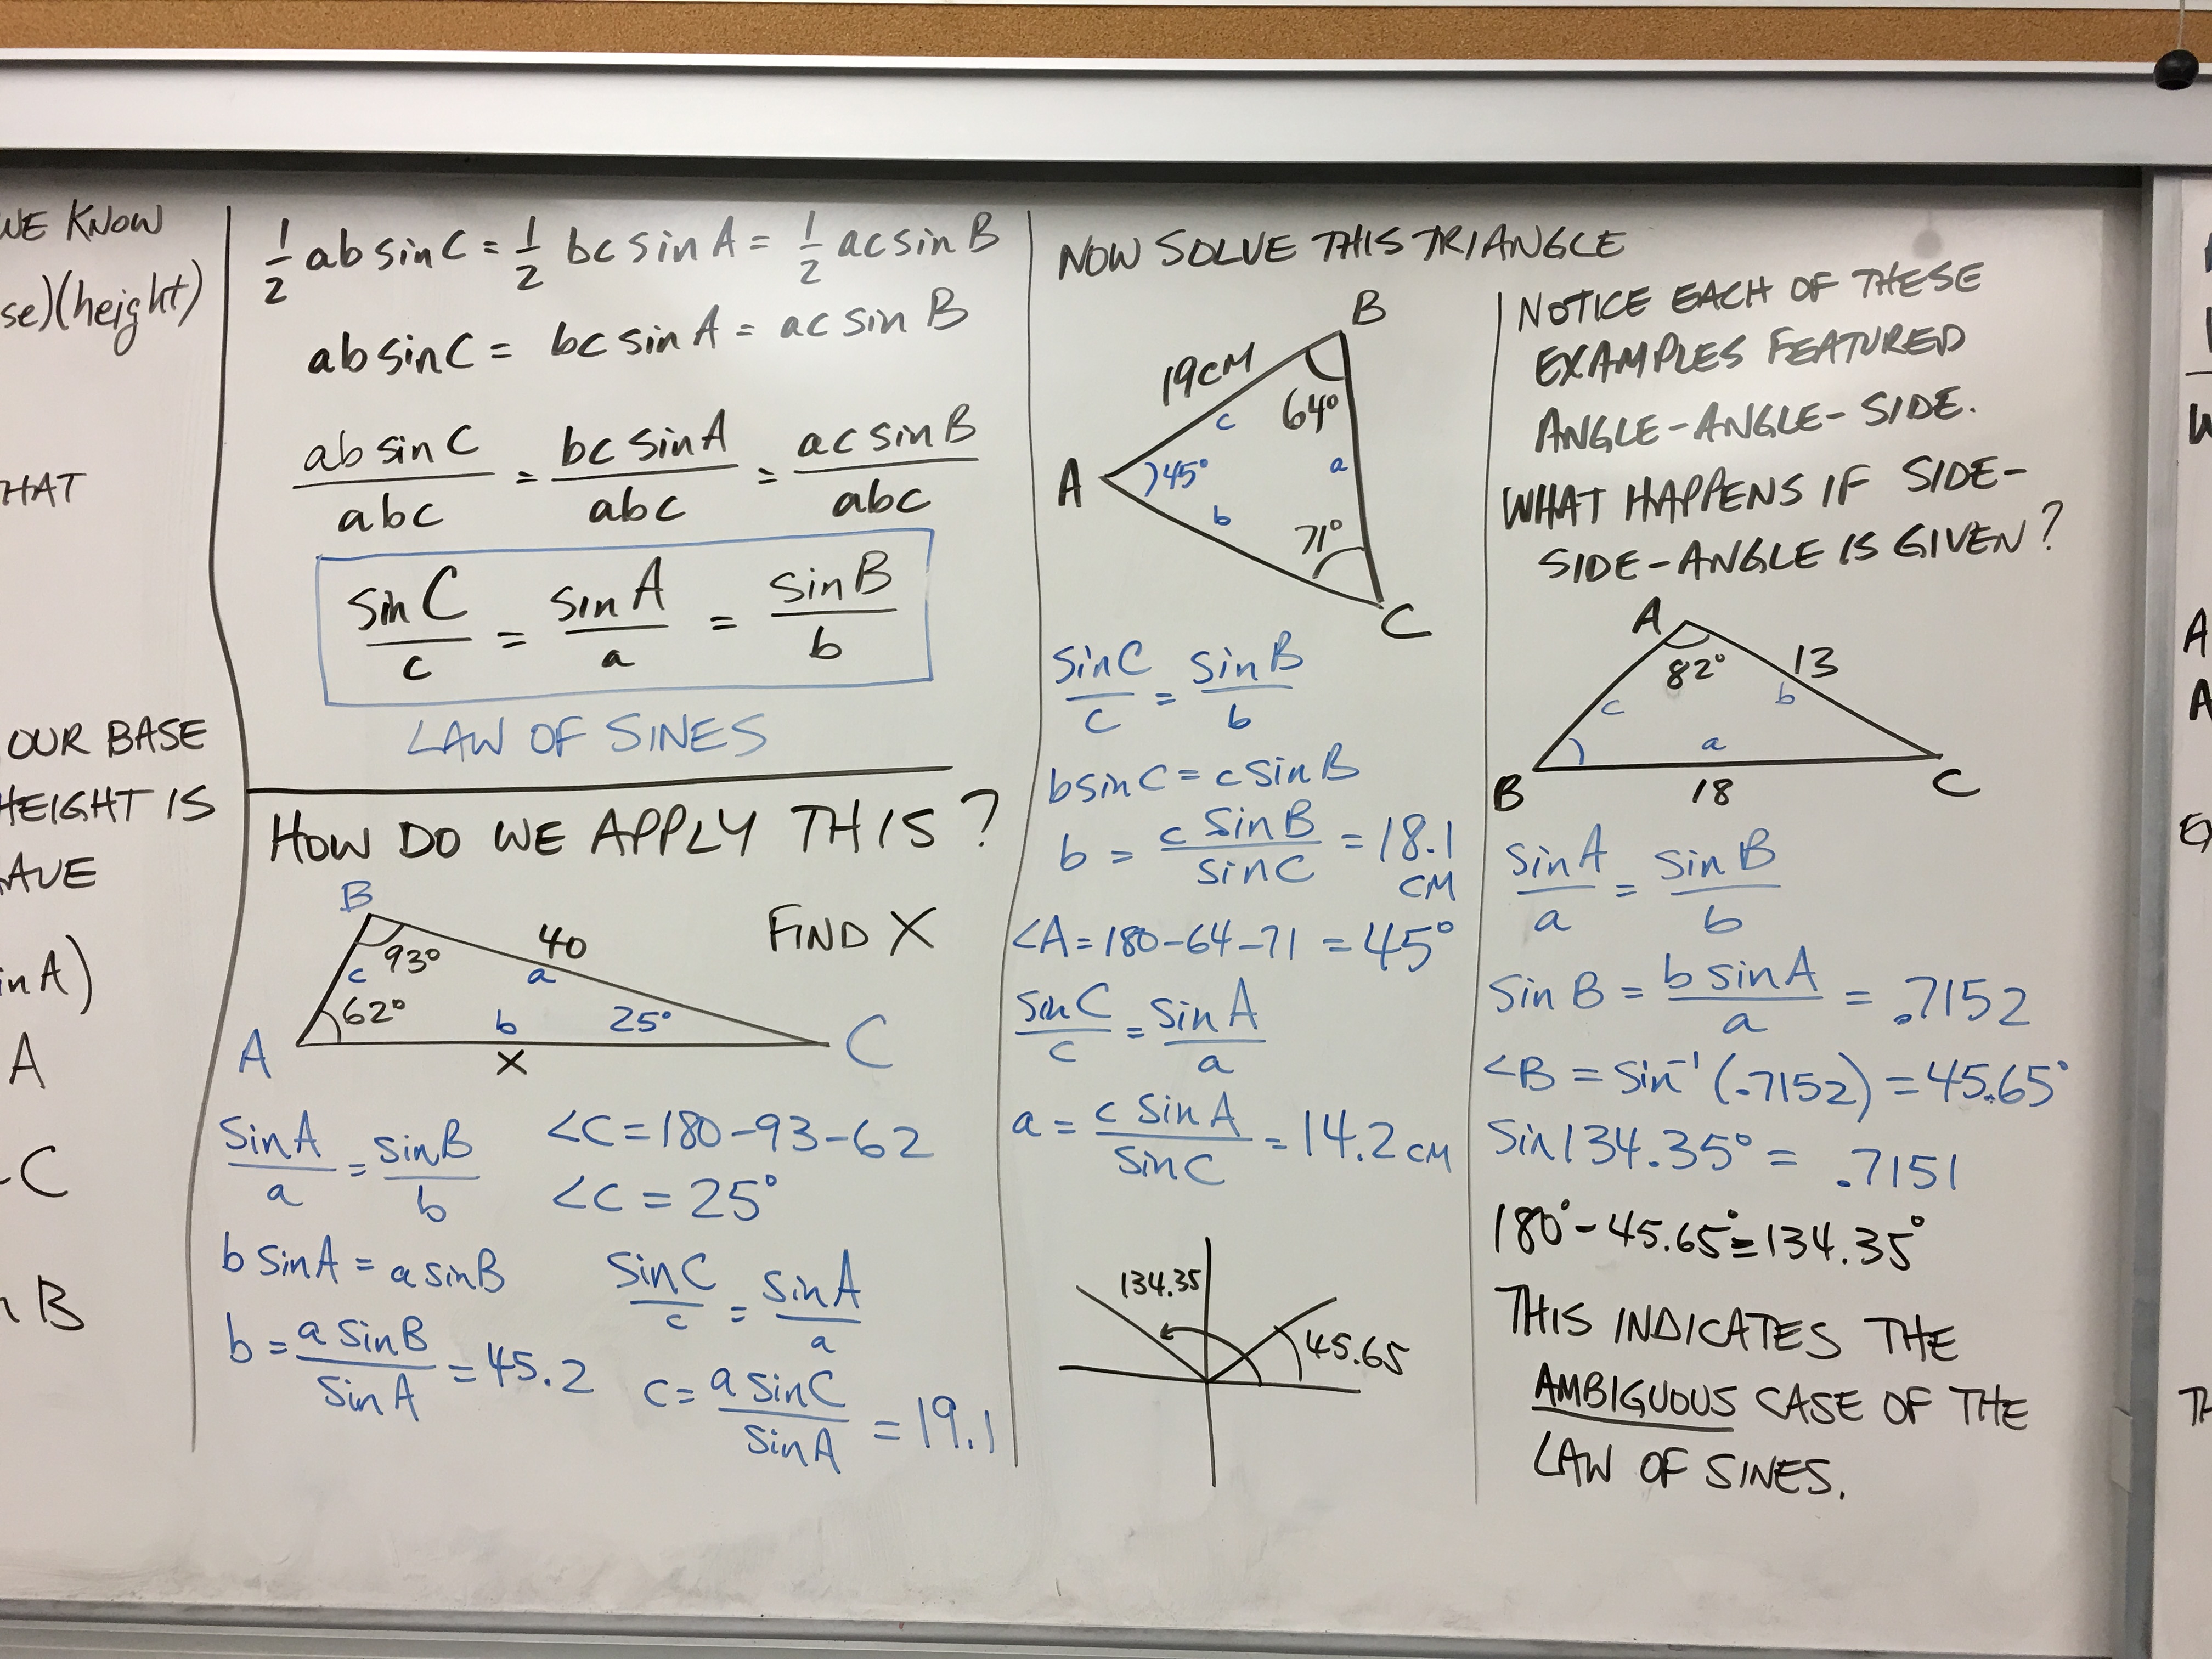 WE KNOW
se)(height)
HAT
OUR BASE
HEIGHT IS
AVE
inA)
A
-C
B
1/2 ab sin C = 1/2 bc sin A = 1/2 ac sin B
ab sin C = bc sin A = ac sin B
ab sin C / abc = bc sin A / abc = ac sin B / abc
sin C / c = sin A / a = sin B / b
LAW OF SINES
HOW DO WE APPLY THIS?
FIND X
B
93°
40
c
a
62°
b
25°
A
X
C
sin A / a = sin B / b
<C = 180-93-62
<C = 25°
b sin A = a sin B
b = a sin B / sin A = 45.2
sin C / c = sin A / a
c = a sin C / sin A = 19.1
NOW SOLVE THIS TRIANGLE
B
19 CM
64°
c
A
45°
a
b
71°
C
sin C / c = sin B / b
b sin C = c sin B
b = c sin B / sin C = 18.1 CM
<A = 180-64-71 = 45°
sin C / c = sin A / a
a = c sin A / sin C = 14.2 CM
134.35
45.65
NOTICE EACH OF THESE
EXAMPLES FEATURED
ANGLE-ANGLE-SIDE.
WHAT HAPPENS IF SIDE-
SIDE-ANGLE IS GIVEN?
A
82°
13
c
b
a
B
18
C
sin A / a = sin B / b
sin B = b sin A / a = .7152
<B = sin⁻¹(.7152) = 45.65°
sin 134.35° = .7151
180° - 45.65° = 134.35°
THIS INDICATES THE
AMBIGUOUS CASE OF THE
LAW OF SINES.
W
A
A
TH